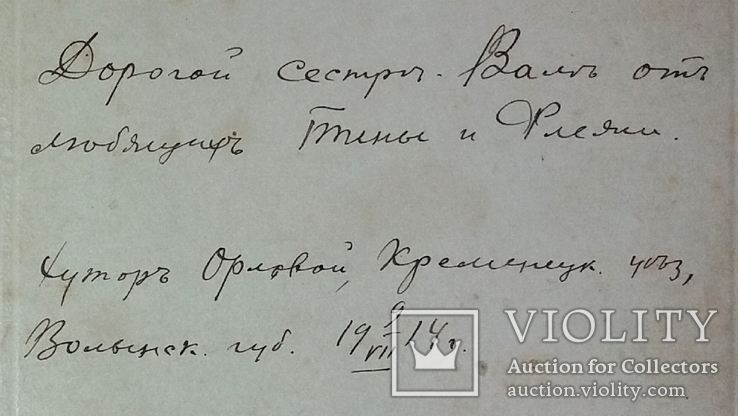 Дорогой сестрѣ Валѣ отъ
любящихъ Тины и
Хуторъ Орловой, Кременецк. уѣз,
Волынск. губ. 19 9/VII 14 г.
VIOLITY
Auction for Collectors
auction.violity.com